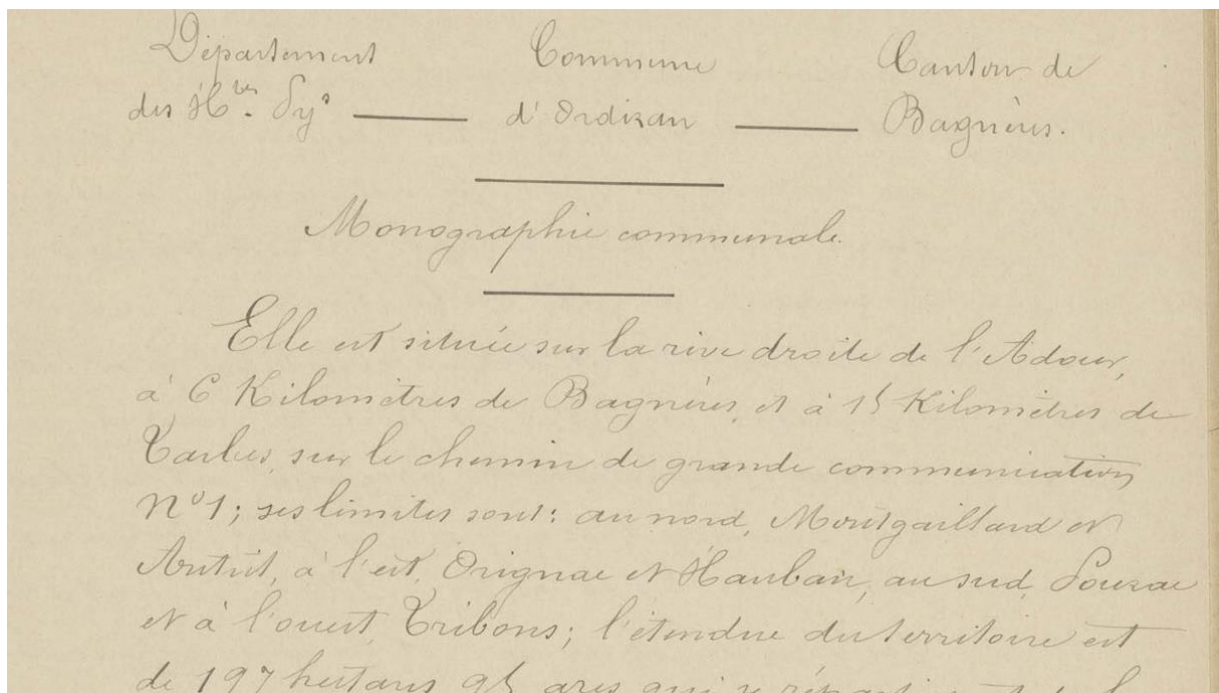 Département Commune Canton de
des Htes Pys d'Ordizan Bagnères.
Monographie communale.
Elle est située sur la rive droite de l'Adour,
à 6 Kilomètres de Bagnères, et à 15 Kilomètres de
Tarbes, sur le chemin de grande communication
N° 1; ses limites sont: au nord, Montgaillard et
Antist, à l'est, Orignac et Hauban, au sud, Pouzac
et à l'ouest, Trébons; l'étendue du territoire est
de 197 hectares 95 ares qui se